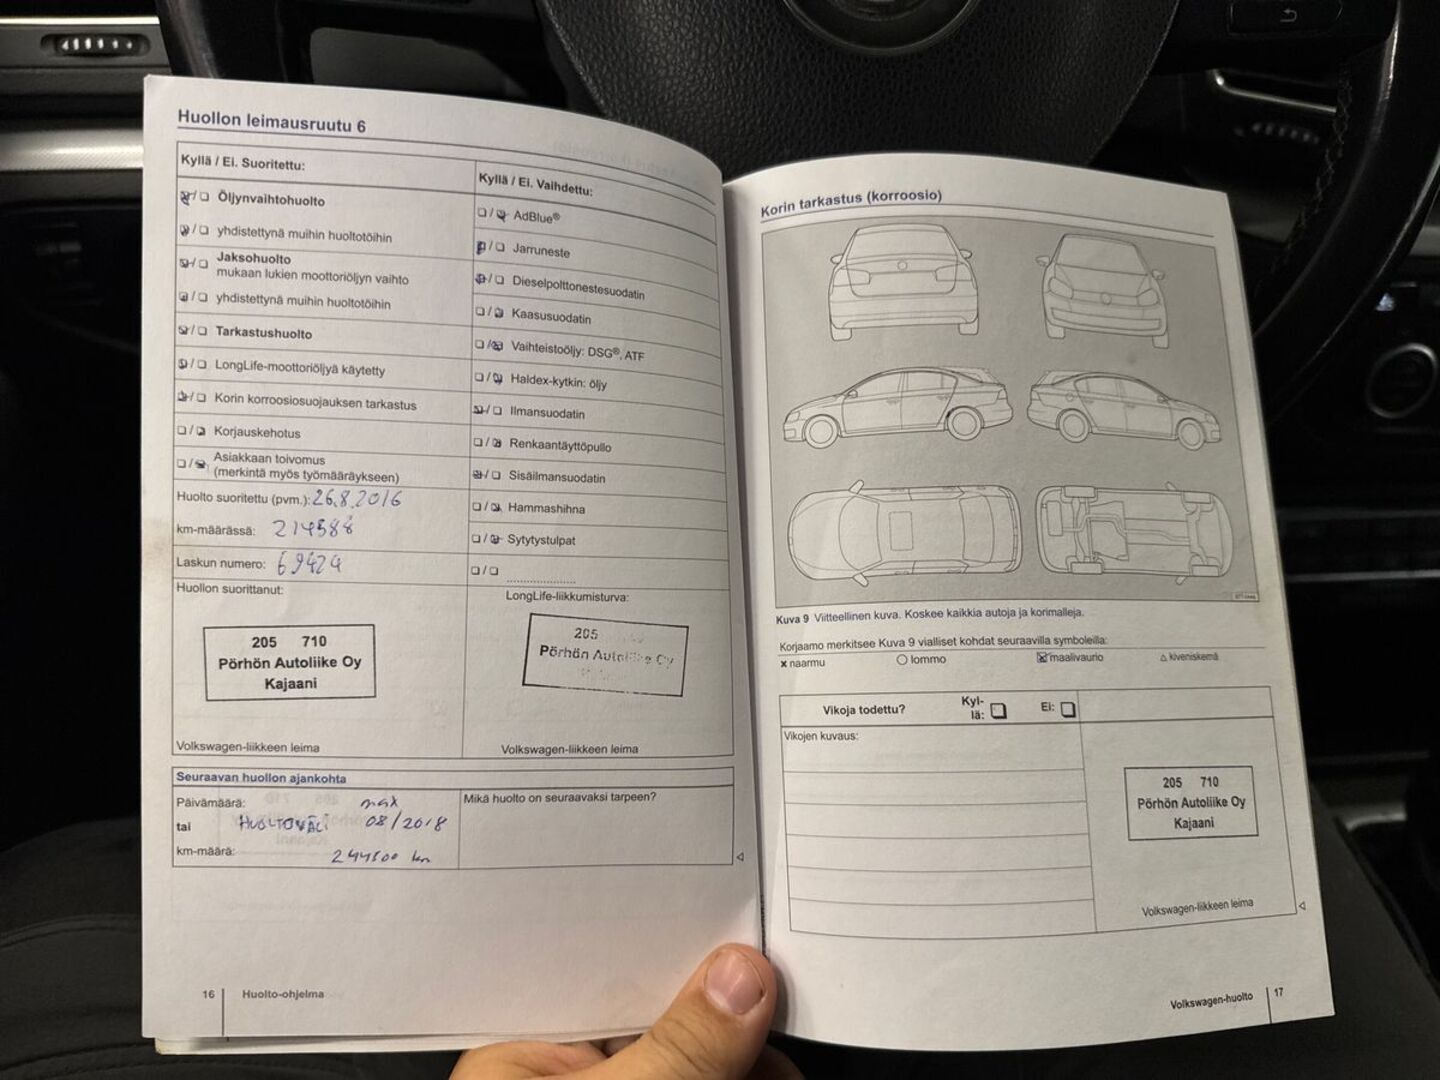 Huollon leimausruutu 6
Kyllä / Ei. Suoritettu:
Öljynvaihtohuolto
yhdistettynä muihin huoltotöihin
Jaksohuolto
mukaan lukien moottoriöljyn vaihto
yhdistettynä muihin huoltotöihin
Tarkastushuolto
LongLife-moottoriöljyä käytetty
Korin korroosiosuojauksen tarkastus
Korjauskehotus
Asiakkaan toivomus
(merkintä myös työmääräykseen)
Huolto suoritettu (pvm.): 26.8.2016
km-määrässä: 214588
Laskun numero: 69424
Huollon suorittanut:
205 710
Pörhön Autoliike Oy
Kajaani
Volkswagen-liikkeen leima
Kyllä / Ei. Vaihdettu:
AdBlue®
Jarruneste
Dieselpolttonestesuodatin
Kaasusuodatin
Vaihteistoöljy: DSG®, ATF
Haldex-kytkin: öljy
Ilmansuodatin
Renkaantäyttöpullo
Sisäilmansuodatin
Hammashihna
Sytytystulpat
LongLife-liikkumisturva:
205
Pörhön Autoliike Oy
Volkswagen-liikkeen leima
Seuraavan huollon ajankohta
Päivämäärä: max
tai HUOLTOVÄLI 08/2018
km-määrä: 244500 km
Mikä huolto on seuraavaksi tarpeen?
16 Huolto-ohjelma
Korin tarkastus (korroosio)
Kuva 9 Viitteellinen kuva. Koskee kaikkia autoja ja korimalleja.
Korjaamo merkitsee Kuva 9 vialliset kohdat seuraavilla symboleilla:
x naarmu lommo maalivaurio kiveniskemä
Vikoja todettu? Kyl-
lä: Ei:
Vikojen kuvaus:
205 710
Pörhön Autoliike Oy
Kajaani
Volkswagen-liikkeen leima
Volkswagen-huolto 17